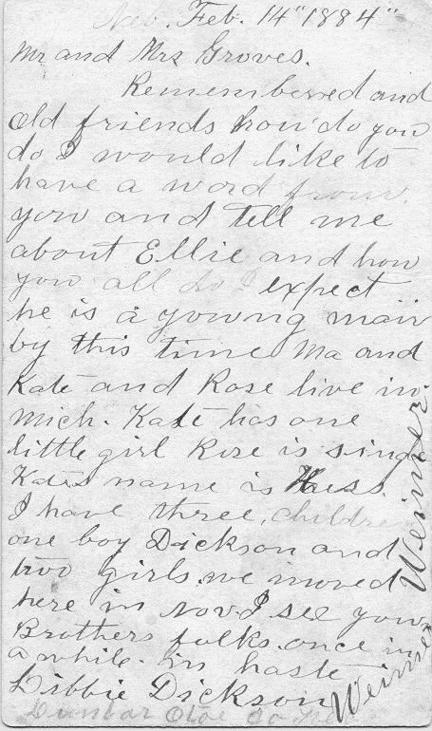 Neb. Feb. 14" 1884"
Mr and Mrs Groves.
Remembered and
old friends how do you
do I would like to
have a word from
you and tell me
about Ellie and how
you all do I expect
he is a young man
by this time Ma and
Kate and Rose live in
Mich. Kate has one
little girl Rose is sing
Kates name is Hess.
I have three, childre
one boy Dickson and
two girls. we moved
here in Nov. I see your
Brothers folks once in
a while. In haste
Libbie Dickson
Dunbar Otoe Co Ne
Weimer
Weimer